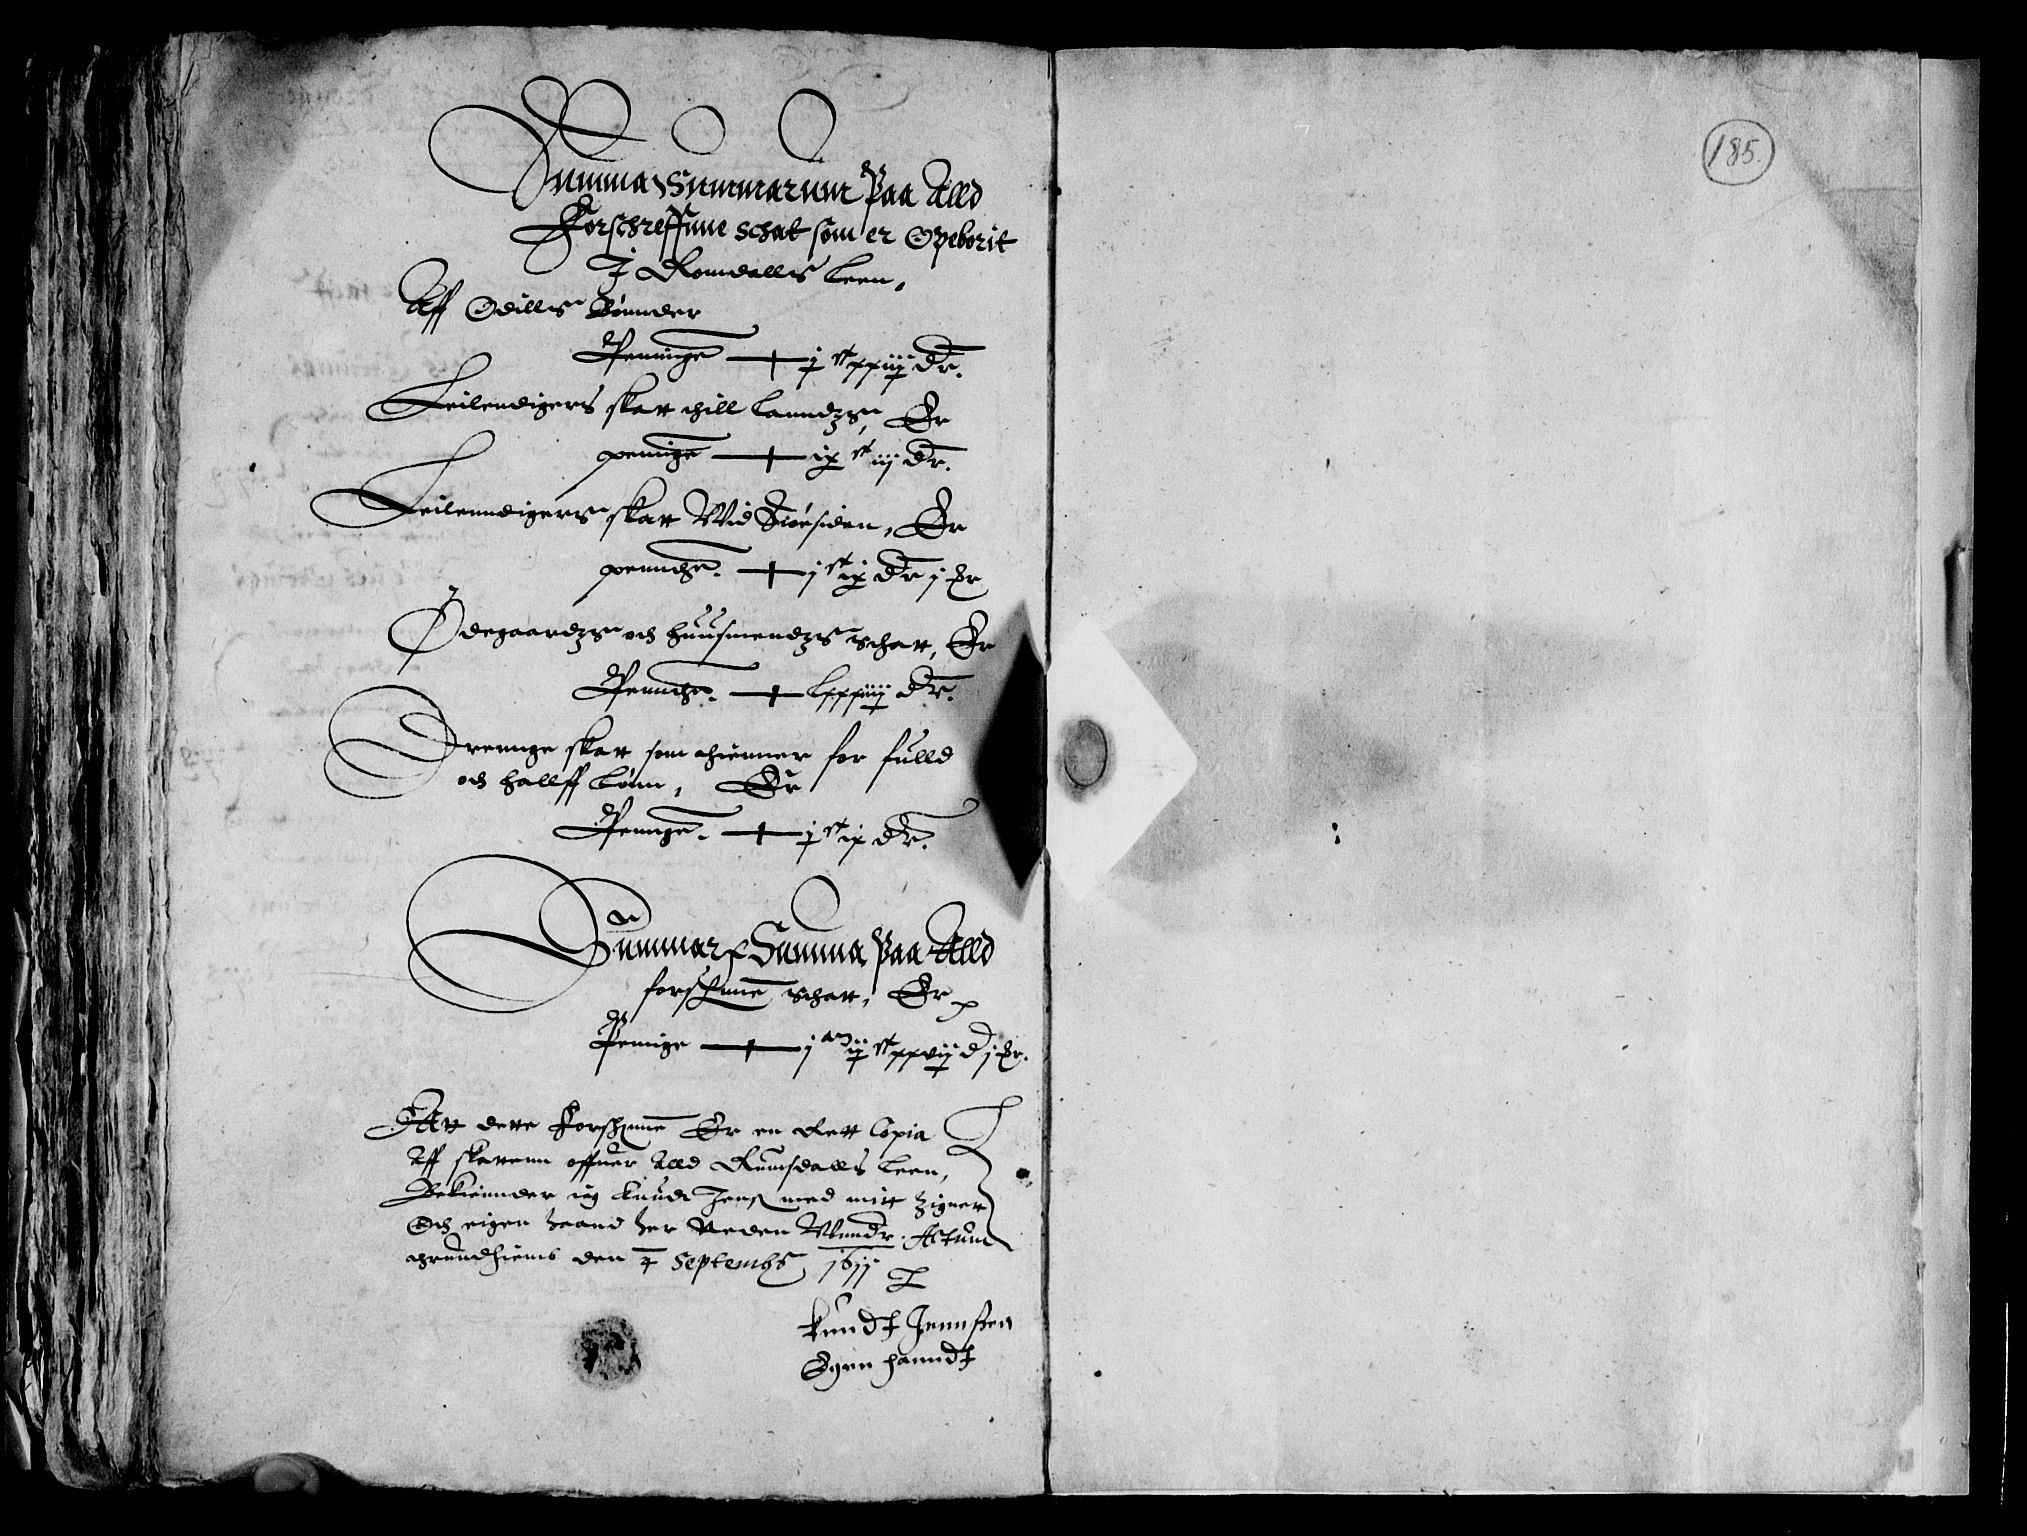 Summa Summarum Paa Alld
Forschreffnne schat som er Opeborit
J Romdalls Leen,
Aff Odills Bønnder
Penninge — j st xxiiij dr.
Leilendigers skatt thill Lanndzs, Er
peninge — ix st iij dr.
Leilenndigers skatt Wid Siøesiden, Er
penninge. — j st ix dr j ȣr
Ødegaardzs och huusmendzs schatt, Er
Penninge. — Lxxxiiij dr.
Drennge skatt som thienner for fulld
och hallff Lønn, Er
Peninge. — j st ix dr.
Summar Summa Paa Alld
forschne schatt, Er
Peninge — j m ij st xxvij d j ȣr.
Att dette Forschne Er en Rett Copia
Aff skattenn offuer Alld Rumsdalls Leen,
Bekiennder ieg Knudt Jens med mitt Zignett
Och eigen haand her Neden Wnndr. Actum
Thrundhiems den 4 Septembs 1611
Knudt Jennssen
Egen hanndt
185.